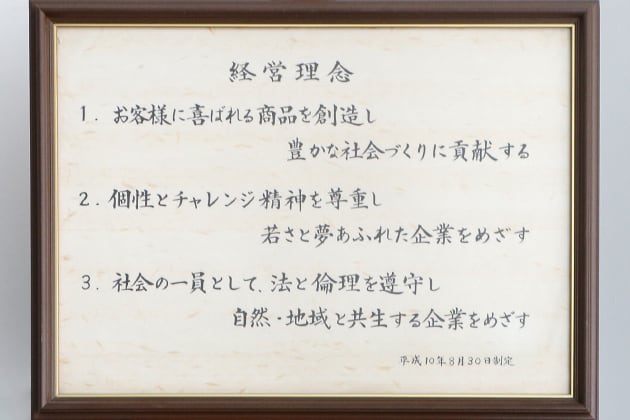 経営理念
1. お客様に喜ばれる商品を創造し
豊かな社会づくりに貢献する
2. 個性とチャレンジ精神を尊重し
若さと夢あふれた企業をめざす
3. 社会の一員として、法と倫理を遵守し
自然・地域と共生する企業をめざす
平成10年8月30日制定